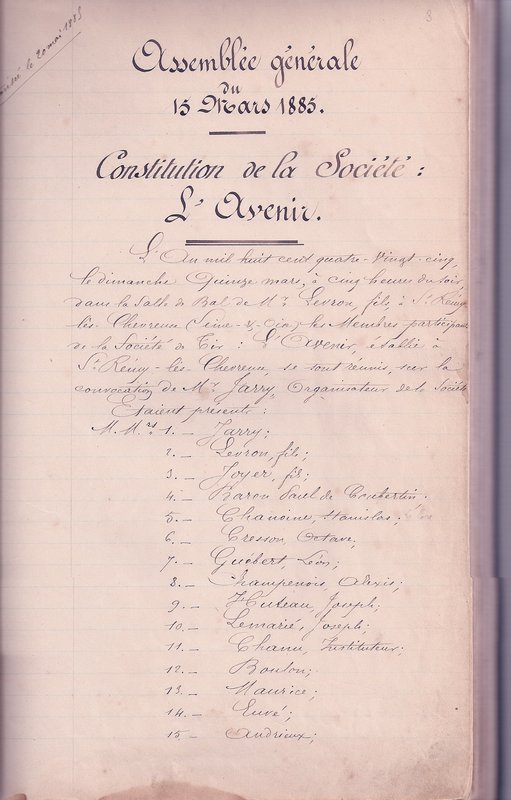 le 20 mai 1885
3
Assemblée générale
du
15 Mars 1885.
Constitution de la Société :
L'Avenir.
L'An mil huit cent quatre-vingt-cinq
le dimanche Quinze mars, à cinq heures du soir,
dans la Salle de Bal de Mr. Levron, fils, à St. Rémy
lès-Chevreuse (Seine-&-Oise) les Membres participants
de la Société de Tir : L'Avenir, établie à
St. Rémy-lès-Chevreuse, se sont réunis, sur la
convocation de Mr. Jarry, Organisateur de la Société
Etaient présents :
M.M.rs 1. — Jarry;
2. — Levron, fils;
3. — Joyer, fils;
4. — Baron Paul de Coubertin;
5. — Chanoine, Stanislas;
6. — Cresson, Octave;
7. — Guébert, Léon;
8. — Champenois, Alexis;
9. — Huteau, Joseph;
10. — Lemarié, Joseph;
11. — Chanu, Instituteur;
12. — Boulon;
13. — Maurice;
14. — Euvé;
15 — Andrieux;